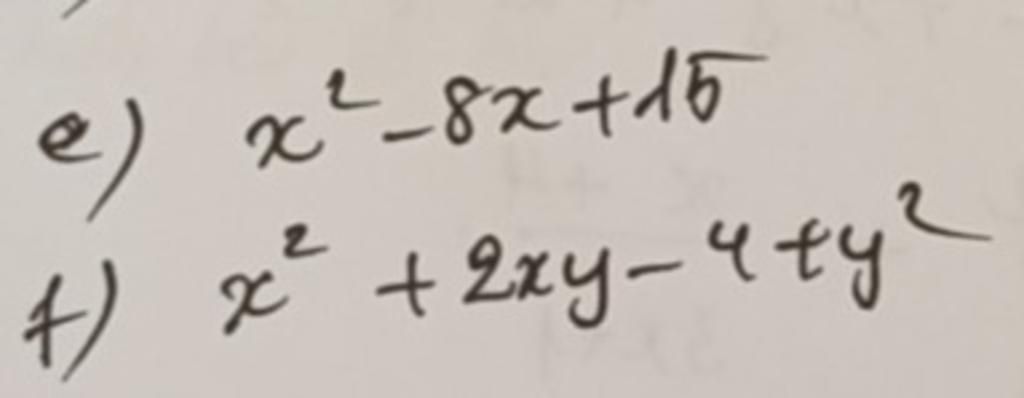 e) x² - 8x + 15
f) x² + 2xy - 4 + y²